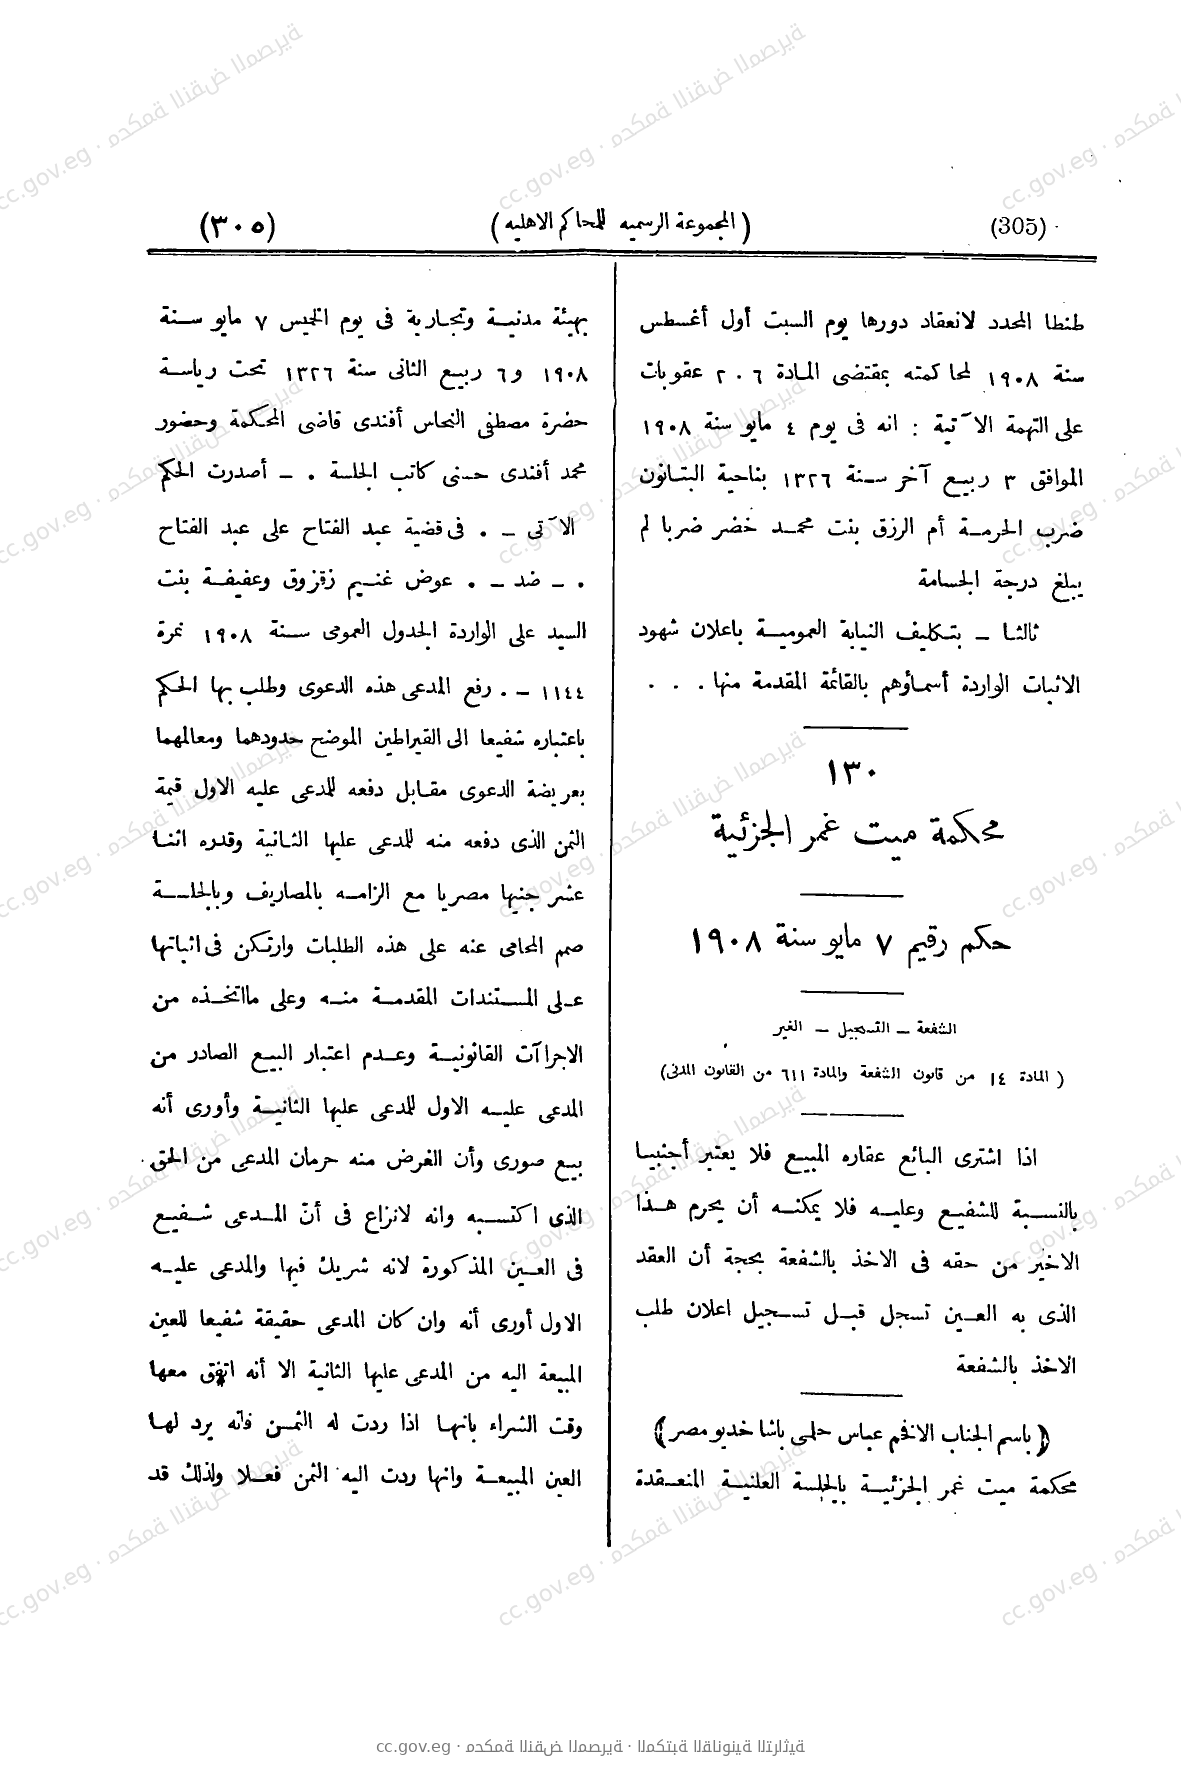 (305)
( المجموعة الرسميه للمحاكم الاهليه )
(٣٠٥)
طنطا المحدد لانعقاد دورها يوم السبت أول أغسطس
سنة ١٩٠٨ لمحاكمته بمقتضى المادة ٢٠٦ عقوبات
على التهمة الآتية : انه فى يوم ٤ مايو سنة ١٩٠٨
الموافق ٣ ربيع آخر سنة ١٣٢٦ بناحية البتانون
ضرب الحرمة أم الرزق بنت محمد خضر ضربا لم
يبلغ درجة الجسامة
ثالثا – بتكليف النيابة العمومية باعلان شهود
الاثبات الواردة أسماؤهم بالقائمة المقدمة منها . . .
١٣٠
محكمة ميت غمر الجزئية
حكم رقيم ٧ مايو سنة ١٩٠٨
الشفعة – التسجيل – الغير
( المادة ١٤ من قانون الشفعة والمادة ٦١١ من القانون المدنى)
اذا اشترى البائع عقاره المبيع فلا يعتبر أجنبيا
بالنسبة للشفيع وعليه فلا يمكنه أن يحرم هذا
الاخير من حقه فى الاخذ بالشفعة بحجة أن العقد
الذى به العين تسجل قبل تسجيل اعلان طلب
الاخذ بالشفعة
( باسم الجناب الافخم عباس حلمى باشا خديو مصر )
محكمة ميت غمر الجزئية بالجلسة العلنية المنعقدة
بهيئة مدنية وتجارية فى يوم الخميس ٧ مايو سنة
١٩٠٨ و٦ ربيع الثانى سنة ١٣٢٦ تحت رياسة
حضرة مصطفى النحاس أفندى قاضى المحكمة وحضور
محمد أفندى حسنى كاتب الجلسة . – أصدرت الحكم
الآتى – . فى قضية عبد الفتاح على عبد الفتاح
. – ضد – . عوض غنيم زقزوق وعفيفة بنت
السيد على الواردة الجدول العمومى سنة ١٩٠٨ نمرة
١١٤٤ – . رفع المدعى هذه الدعوى وطلب بها الحكم
باعتباره شفيعا الى القيراطين الموضح حدودهما ومعالمهما
بعريضة الدعوى مقابل دفعه للمدعى عليه الاول قيمة
الثمن الذى دفعه منه للمدعى عليها الثانية وقدره اثنا
عشر جنيها مصريا مع الزامه بالمصاريف وبالجلسة
صمم المحامى عنه على هذه الطلبات وارتكن فى اثباتها
على المستندات المقدمة منه وعلى مااتخذه من
الاجراآت القانونية وعدم اعتبار البيع الصادر من
المدعى عليه الاول للمدعى عليها الثانية وأورى أنه
بيع صورى وأن الغرض منه حرمان المدعى من الحق
الذى اكتسبه وانه لانزاع فى أنّ المدعى شفيع
فى العين المذكورة لانه شريك فيها والمدعى عليه
الاول أورى أنه وان كان المدعى حقيقة شفيعا للعين
المبيعة اليه من المدعى عليها الثانية الا أنه اتفق معها
وقت الشراء بانها اذا ردت له الثمن فانه يرد لها
العين المبيعة وانها ردت اليه الثمن فعلا ولذلك قد
cc.gov.eg · محكمة النقض المصرية · المكتبة القانونية التراثية